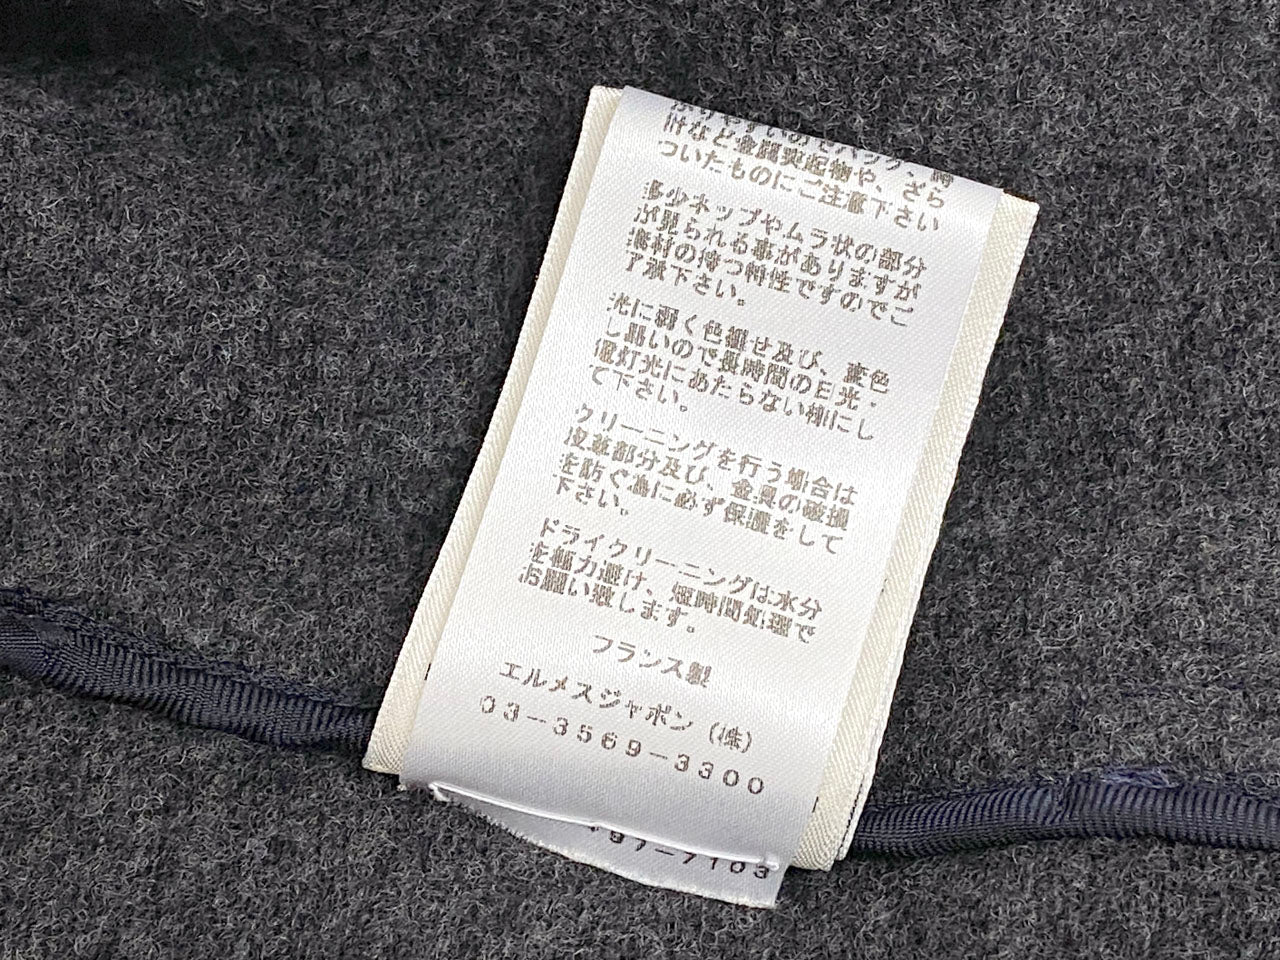 けなど金属突起物や、ざら
ついたものにご注意下さい
多少ネップやムラ状の部分
が見られる事がありますが
素材の持つ特性ですのでご
了承下さい。
光に弱く色褪せ及び、変色
し易いので長時間の日光・
蛍灯光にあたらない様にし
て下さい。
クリーニングを行う場合は
皮革部分及び、金属の破損
を防ぐ為に必ず保護をして
下さい。
ドライクリーニングは水分
を極力避け、短時間処理で
お願い致します。
フランス製
エルメスジャポン(株)
03-3569-3300
497-7103